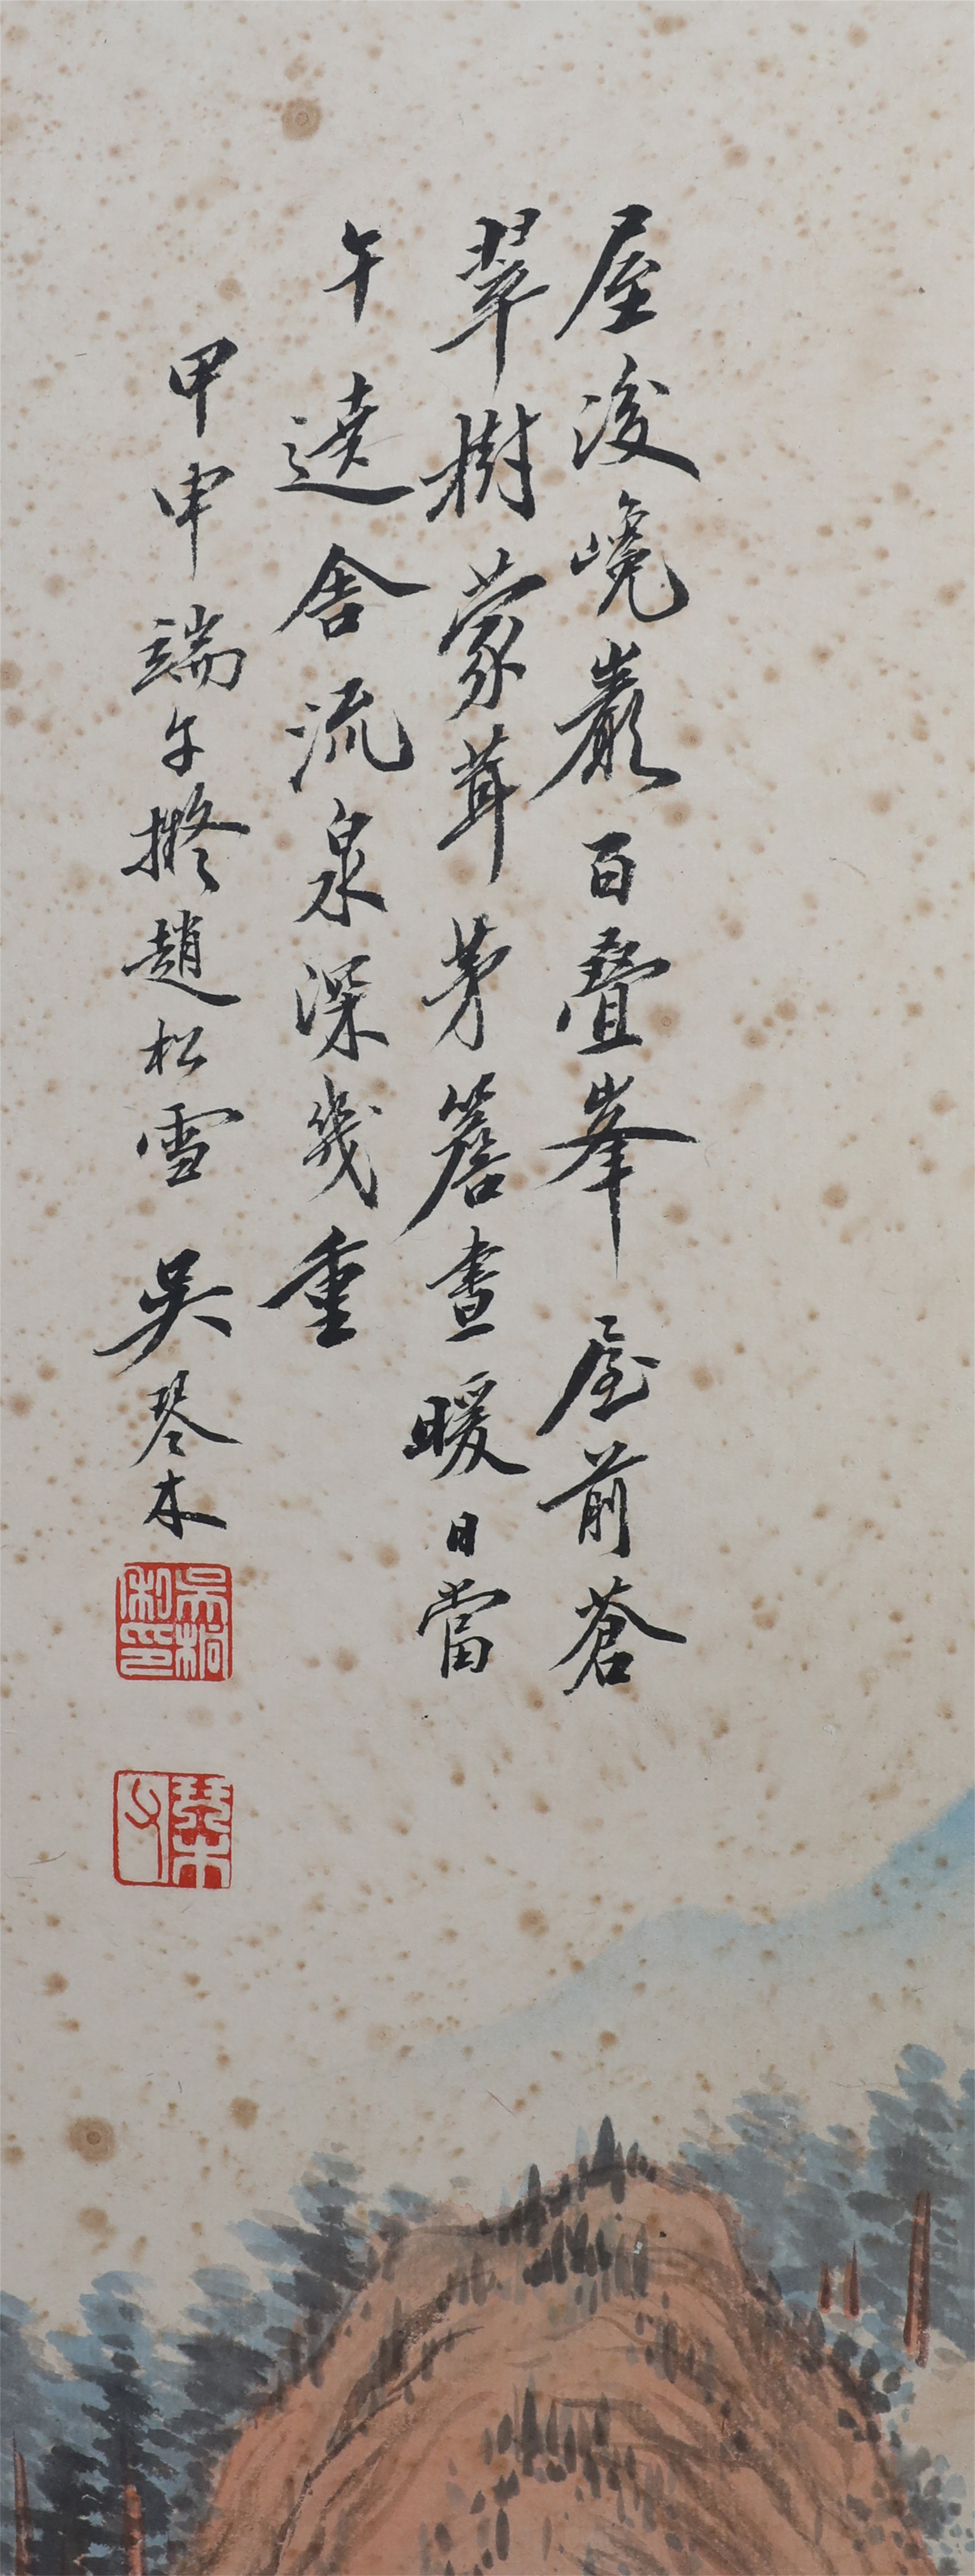 屋後巉巖百疊峯屋前蒼
翠樹蒙茸茅簷晝暖日當
午遶舍流泉深幾重
甲申端午擬趙松雪吳琴木
吳桐私印
琴木